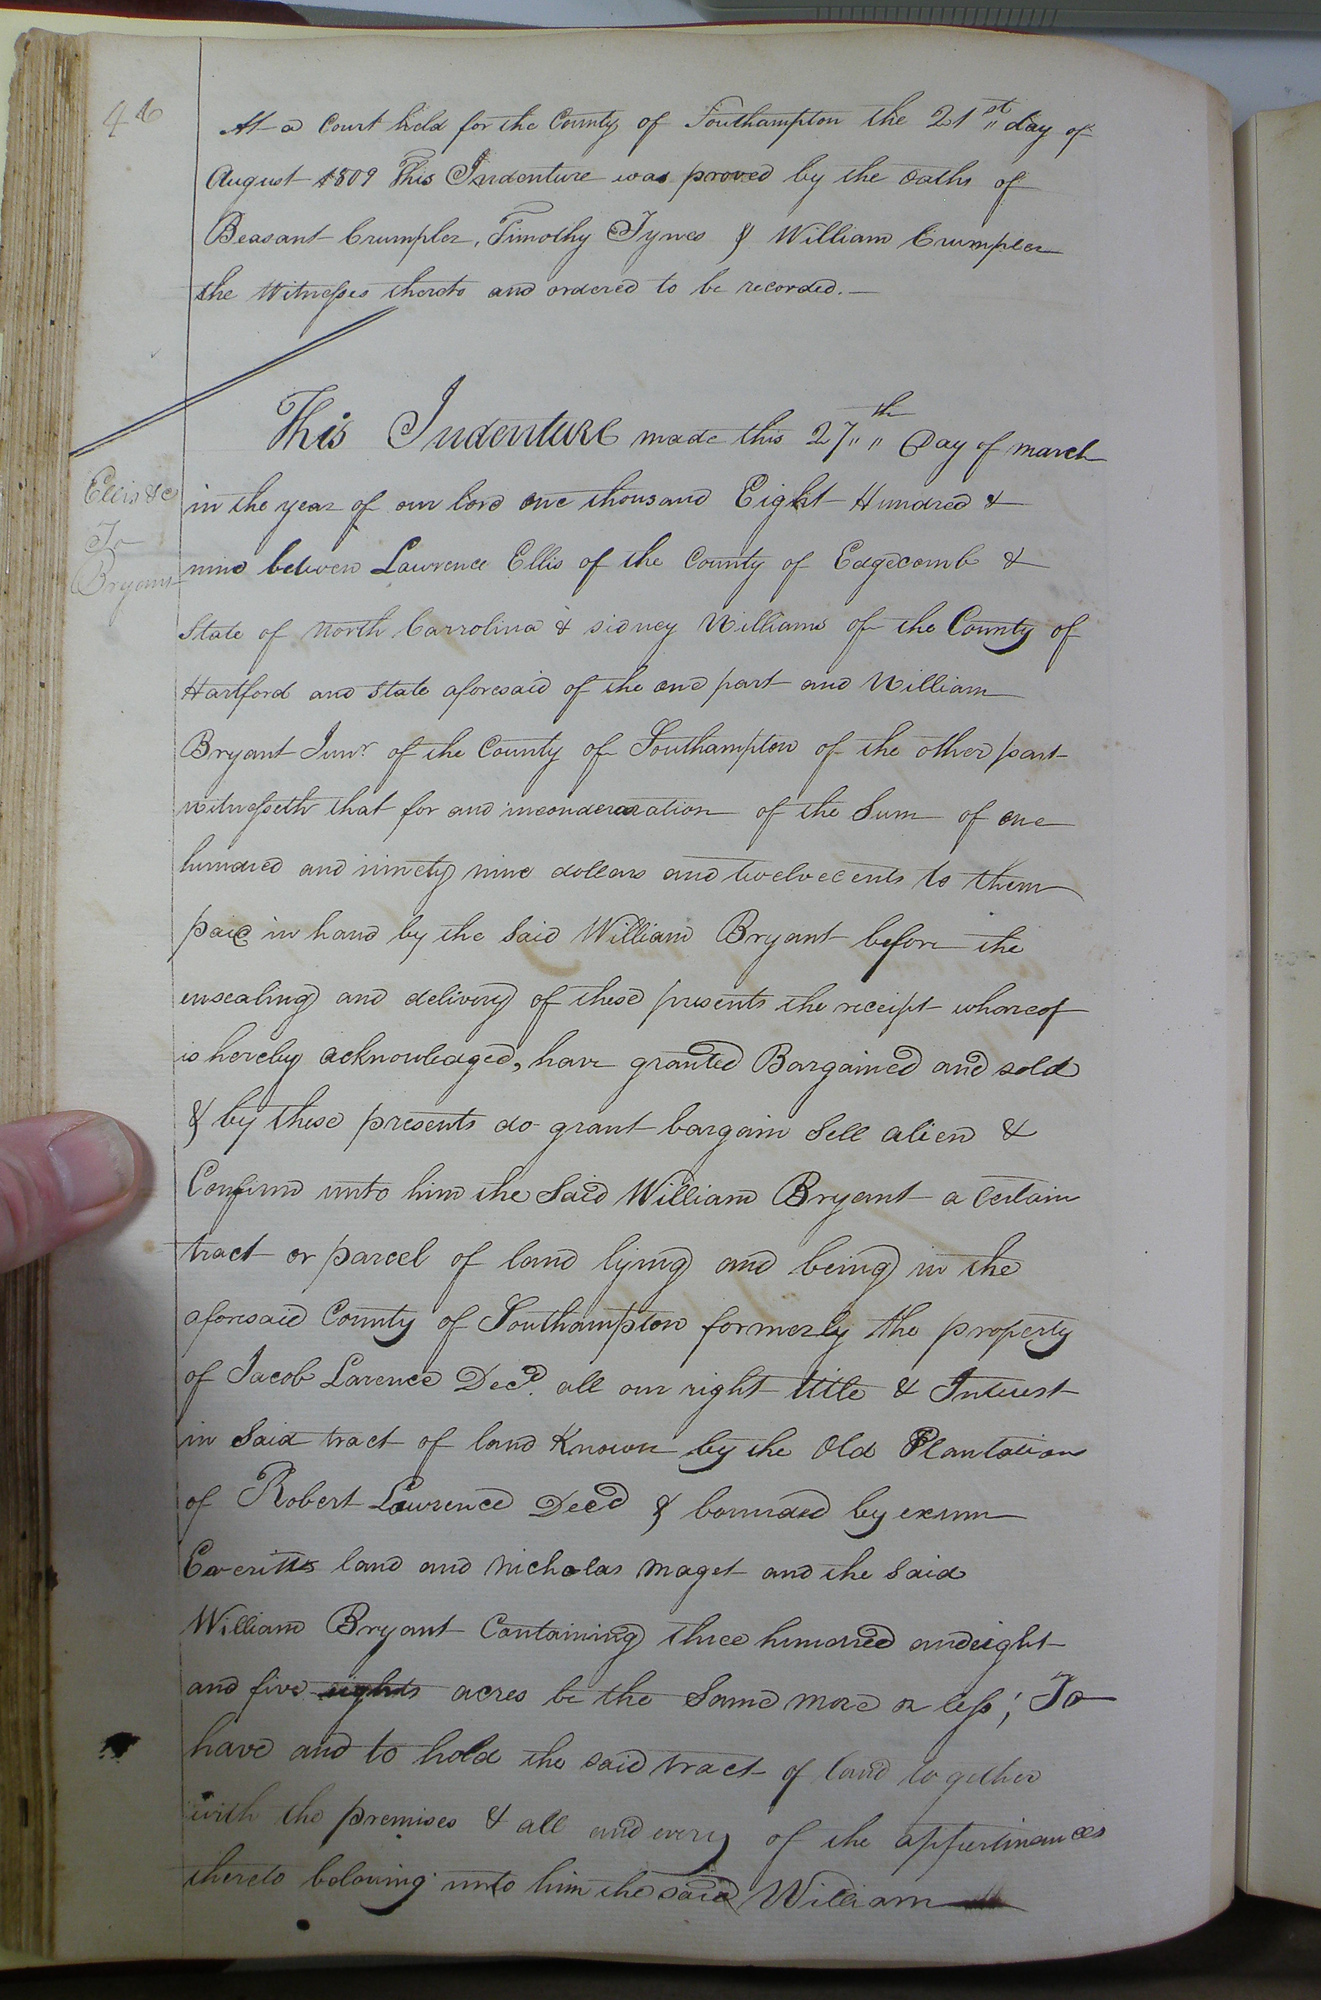 46
At a Court held for the County of Southampton the 21st day of
August 1809 This Indenture was proved by the oaths of
Beasant Crumpler, Timothy Tynes & William Crumpler
the Witnesses thereto and ordered to be recorded. —
This Indenture made this 27th Day of march
Ellis &c
To
Bryant
in the year of our lord one thousand Eight Hundred &
nine between Lawrence Ellis of the County of Edgecomb &
State of North Carrolina & sidney Williams of the County of
Hartford and State aforesaid of the one part and William
Bryant Junr of the County of Southampton of the other part
witnesseth that for and inconderation of the Sum of one
hundred and ninety nine dollars and twelve cents to them
paid in hand by the Said William Bryant before the
ensealing and delivery of these presents the receipt whareof
is hereby acknowledged, have granted Bargained and sold
& by these presents do grant bargain Sell alien &
Confirm unto him the Said William Bryant a Certain
tract or parcel of land lying and being in the
aforesaid County of Southampton formerly the property
of Jacob Larence Decd. all our right title & Interest
in Said tract of land Known by the Old Plantation
of Robert Lawrence Decd & bounded by exum
Everitts land and Nicholas Maget and the Said
William Bryant Containing three hundred and eight
and five eights acres be the Same more or less; To
have and to hold the said tract of land together
with the premises & all and every of the appurtinances
thereto beloning unto him the said William